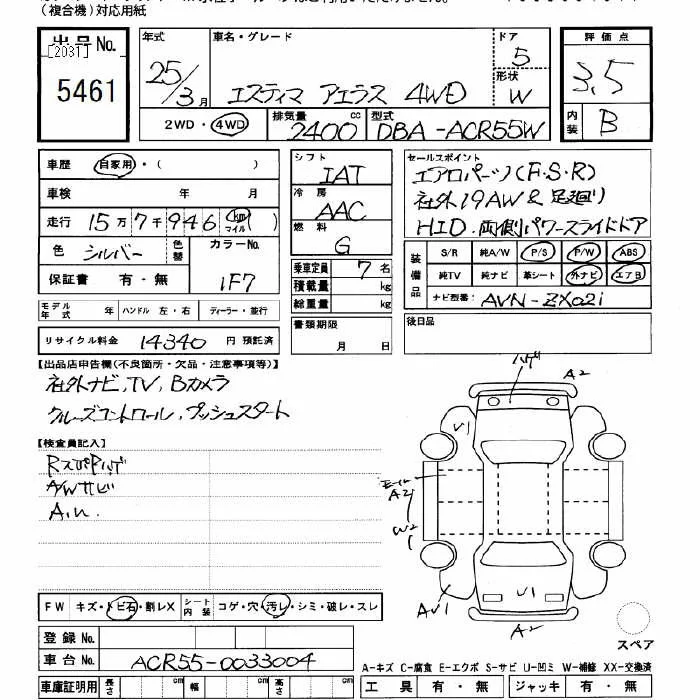 (複合機)対応用紙
出品No.
[2031]
5461
年式
25/3月
車名・グレード
エスティマ アエラス 4WD
ドア
5
形状
W
評価点
3.5
内装
B
2WD・4WD
排気量
2400 cc
型式
DBA-ACR55W
車歴 自家用・( )
車検 年 月
走行 15万7千946 km マイル
色 シルバー 色替
カラーNo.
1F7
保証書 有・無
モデル年式 年 ハンドル 左・右 ディーラー・並行
リサイクル料金 14340 円 預託済
シフト
IAT
冷房
AAC
燃料
G
乗車定員 7 名
積載量 kg
総重量 kg
書類期限
月 日
セールスポイント
エアロパーツ(F・S・R)
社外19AW & 足廻り
HID・両側パワースライドドア
装備品
S/R 純A/W P/S P/W ABS
純TV 純ナビ 革シート 外ナビ エアB
ナビ型番: AVN-ZX02i
後日品
【出品店申告欄(不良箇所・欠品・注意事項等)】
社外ナビ,TV,Bカメラ
クルーズコントロール,プッシュスタート
【検査員記入】
RスポPハゲ
A/Wサビ
FW キズ・トビ石・割レX
シート内装 コゲ・穴・汚レ・シミ・破レ・スレ
登録No.
車台No. ACR55-0033004
車庫証明用 長さ cm 幅 cm 高さ cm
ハゲ
A2
U1
A2
W2
AU1
U1
A2
スペア
A-キズ C-腐食 E-エクボ S-サビ U-凹ミ W-補修 XX-交換済
工具 有・無 ジャッキ 有・無